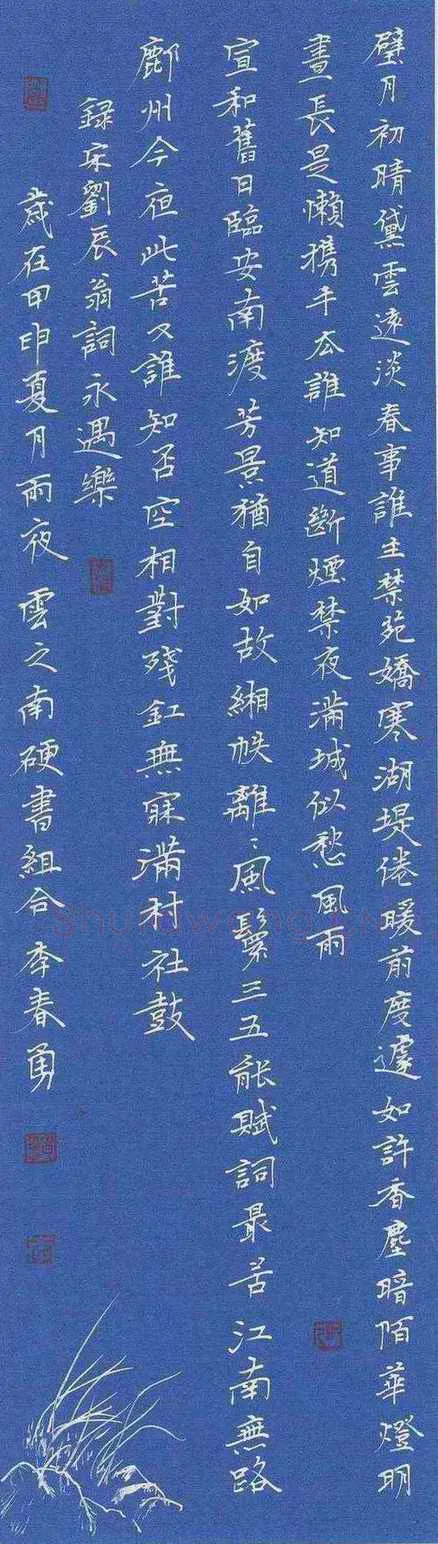 璧月初晴黛雲遠淡春事誰主禁苑嬌寒湖堤倦暖前度遽如許香塵暗陌華燈明
晝長是懶携手去誰知道斷煙禁夜滿城似愁風雨
宣和舊日臨安南渡芳景猶自如故緗帙離〻風鬟三五能賦詞最苦江南無路
鄜州今夜此苦又誰知否空相對殘釭無寐滿村社鼓
錄宋劉辰翁詞永遇樂
歲在甲申夏月雨夜 雲之南硬書組合李春勇